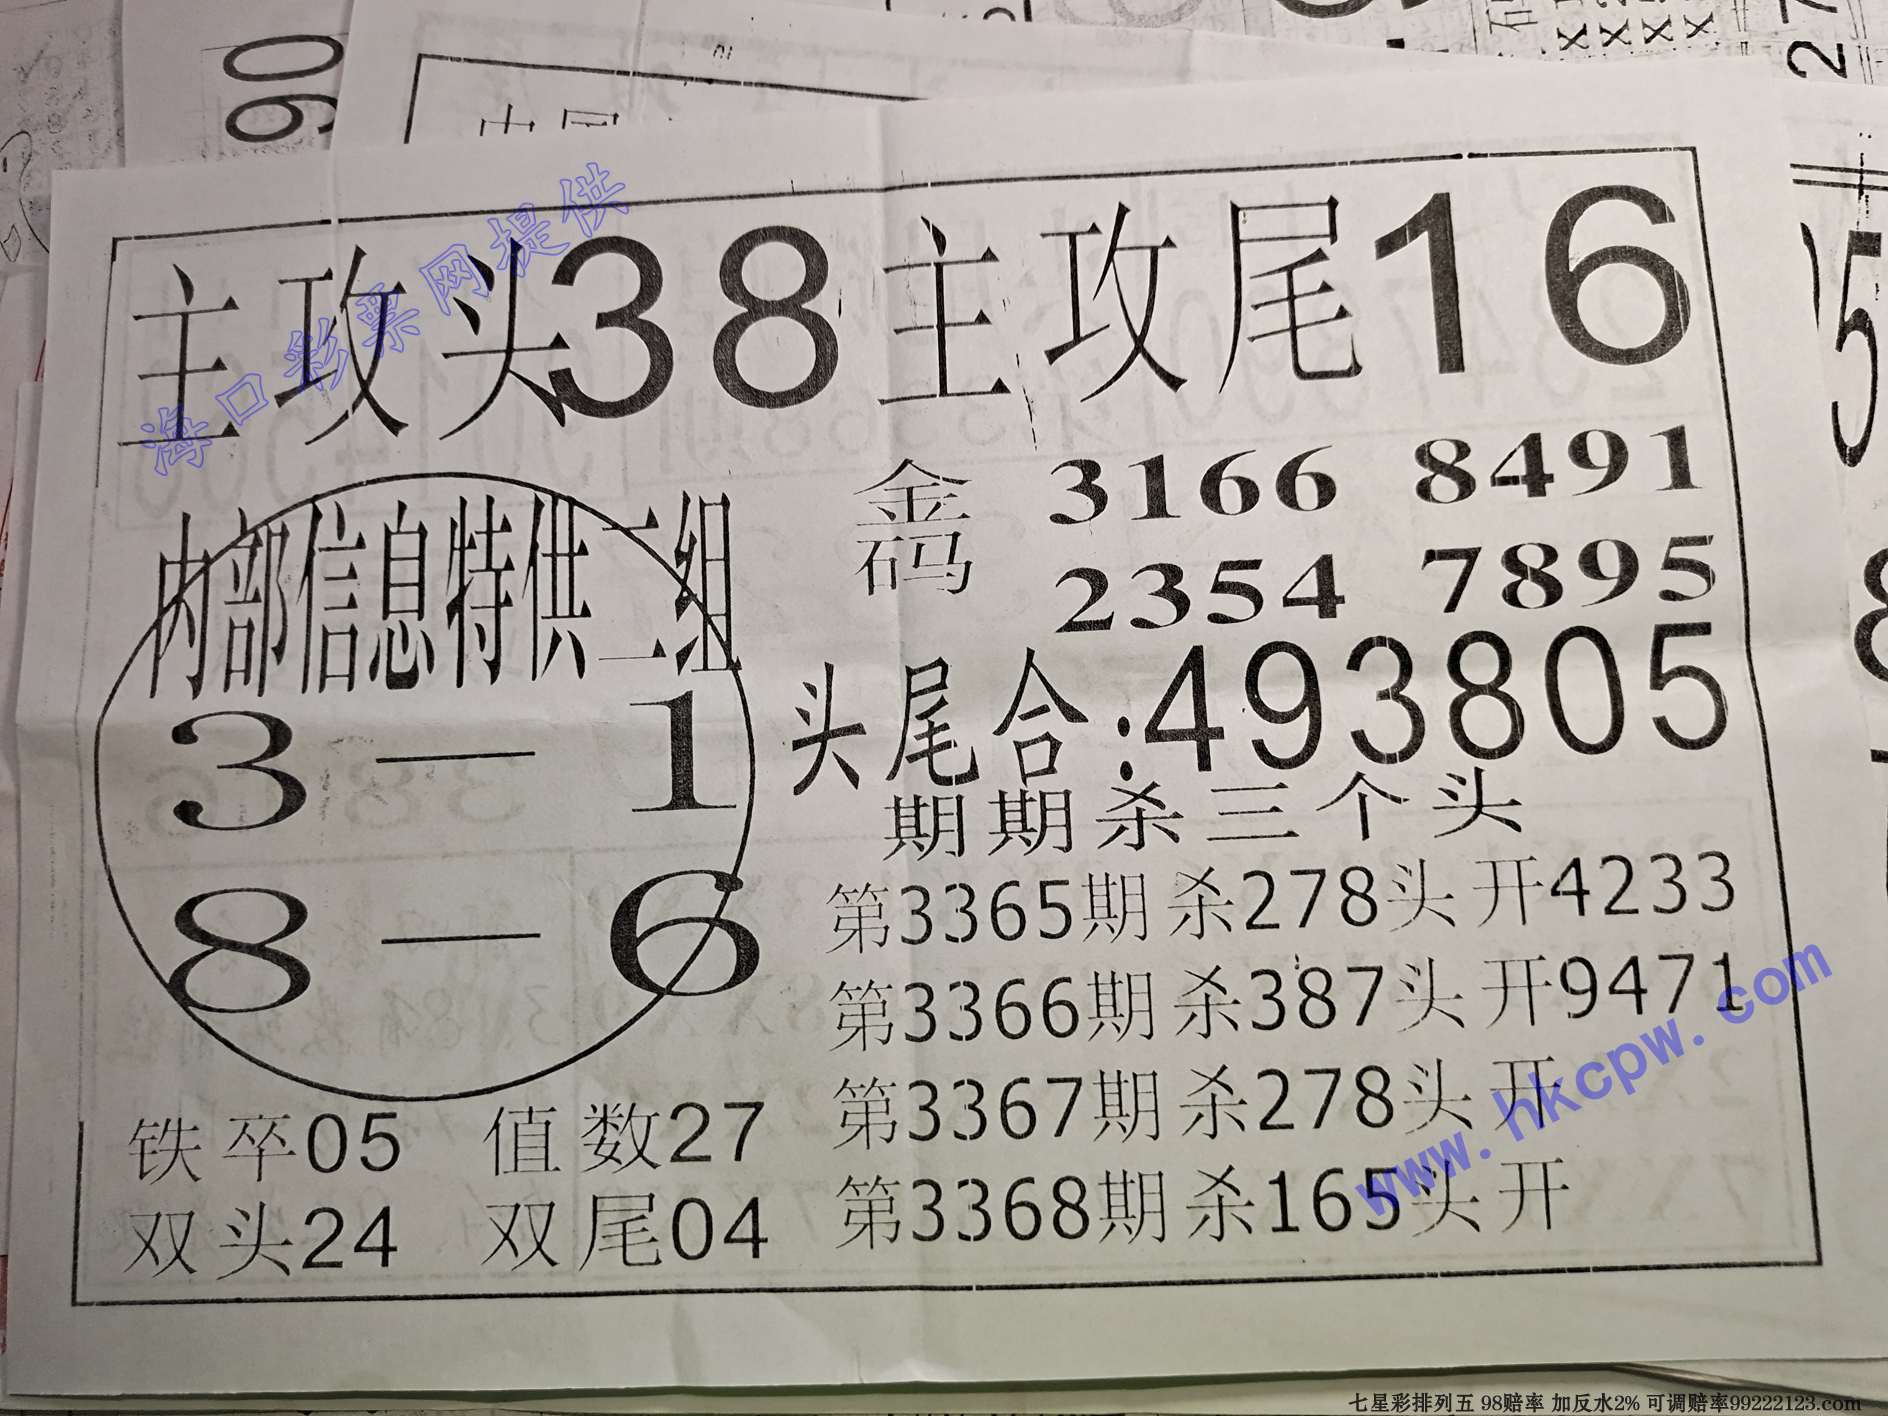 90
27
主攻头38 主攻尾16
海口彩票网提供
内部信息特供二组
3—1
8—6
铁卒05 值数27
双头24 双尾04
金码 3166 8491
2354 7895
头尾合:493805
期期杀三个头
第3365期杀278头开4233
第3366期杀387头开9471
第3367期杀278头开
第3368期杀165头开
www.hkcpw.com
5
七星彩排列五 98赔率 加反水2% 可调赔率99222123.com